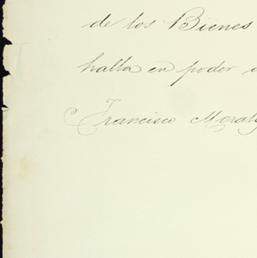 de los Bienes
halla en poder
Francisco